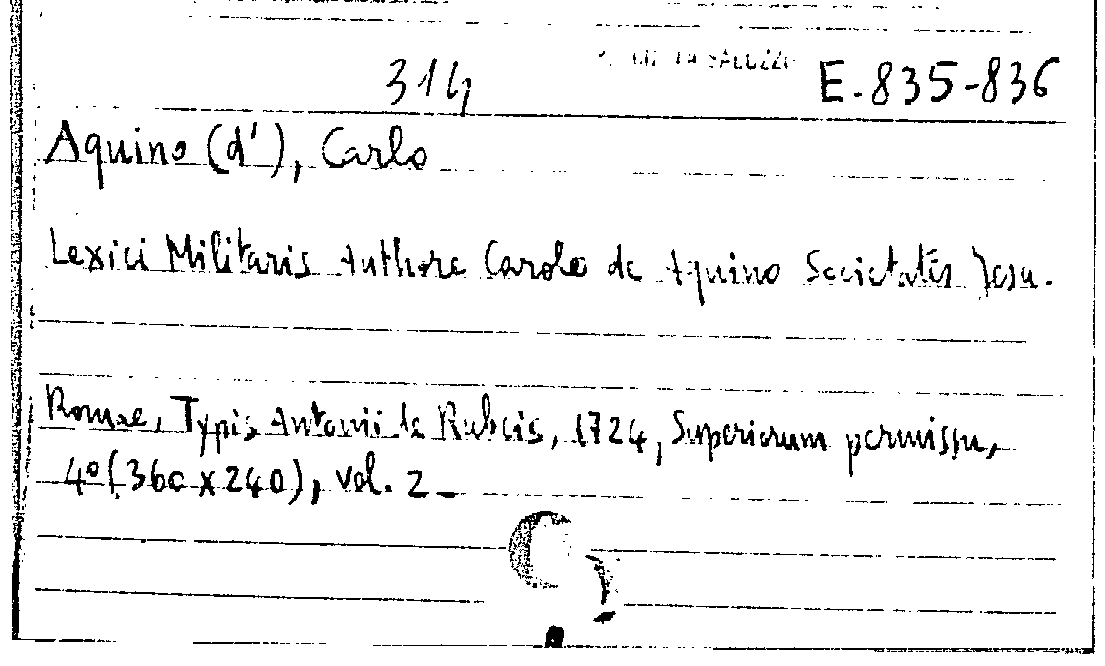 314 E.835-836
Aquino (d'), Carlo
Lexici Militaris Authore Carolo de Aquino Societatis Jesu.
Romae, Typis Antonii de Rubeis, 1724, Superiorum permissu,
4° (360 x 240), vol. 2_